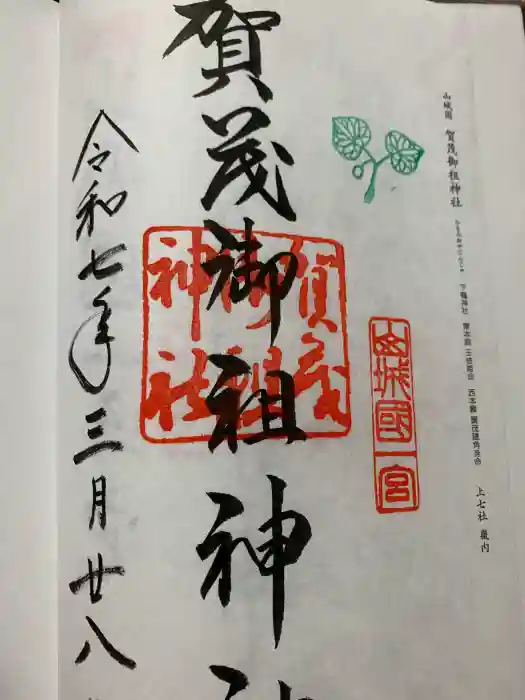 山城国 賀茂御祖神社 かもみおやじんじゃ 下鴨神社 東本殿 玉依媛命 西本殿 賀茂建角身命 上七社 畿内
山城國一宮
賀茂御祖神社
賀茂
御祖
神社
令和七年三月廿八